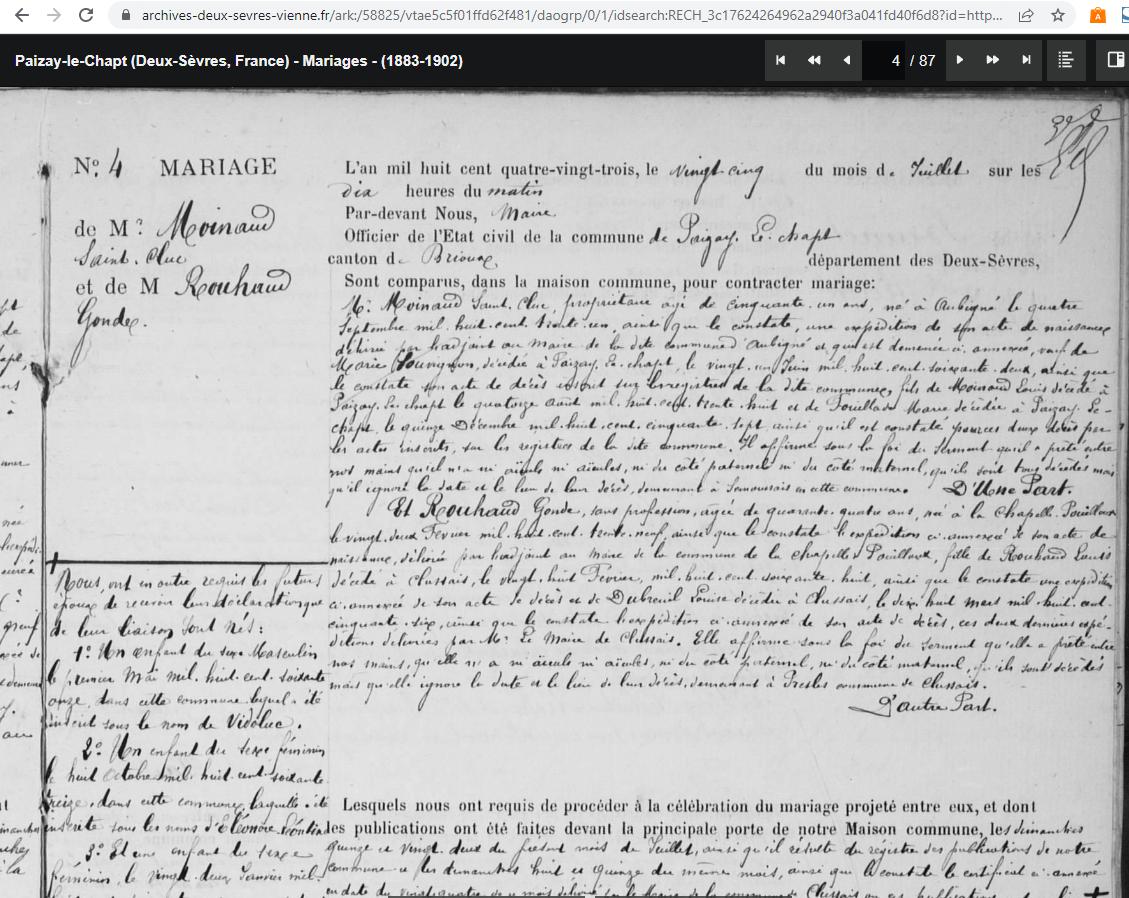 archives-deux-sevres-vienne.fr/ark:/58825/vtae5c5f01ffd62f481/daogrp/0/1/idsearch:RECH_3c17624264962a2940f3a041fd40f6d8?id=http...
Paizay-le-Chapt (Deux-Sèvres, France) - Mariages - (1883-1902)
4 / 87
No. 4 MARIAGE
de Mr. Moinaud
Saint. Cluc
et de M Rouhaud
Gonde.
L'an mil huit cent quatre-vingt-trois, le vingt cinq du mois de Juillet sur les
dix heures du matin
Par-devant Nous, Maire
Officier de l'Etat civil de la commune de Paizay. Le. chapt
canton de Brioux département des Deux-Sèvres,
Sont comparus, dans la maison commune, pour contracter mariage:
Mr. Moinaud Saint. Cluc, propriétaire agé de cinquante. un ans, né à Aubigné le quatre
Septembre mil. huit. cent. trente. un, ainsi que le constate, une expédition de son acte de naissance
délivré par l'adjoint au maire de la dite commune d'Aubigné et qui est demeurée ci. annexée, veuf de
Marie Souvignon, décédée à Paizay. Le. chapt, le vingt. un Juin mil. huit. cent. soixante. deux, ainsi que
le constate son acte de décès inscrit sur les registres de la dite commune, fils de Moinaud Louis décédé à
Paizay. Le. chapt le quatorze août mil. huit. cent. trente. huit et de Fouillad Marie décédée à Paizay. Le-
chapt, le quinze Décembre mil. huit. cent. cinquante. sept ainsi qu'il est constaté pour ces deux décès par
les actes inscrits, sur les registres de la dite commune. Il affirme sous la foi du serment qu'il a prêté entre
nos mains qu'il n'a ni aïeuls ni aïeules, ni du côté paternel ni du côté maternel, qu'ils sont tous décédés mais
qu'il ignore la date et le lieu de leur décès, demeurant à Semoussais en cette commune. D'Une Part.
Et Rouhaud Gonde, sans profession, agée de quarante. quatre ans, née à la Chapelle. Pouilloux
le vingt. deux Février mil. huit. cent. trente. neuf, ainsi que le constate l'expédition ci. annexée de son acte de
naissance, délivré par l'adjoint au Maire de la commune de la Chapelle Pouilloux, fille de Rouhaud Louis
décédé à Clussais, le vingt. huit Février, mil. huit. cent. soixante. huit, ainsi que le constate une expédition
ci. annexée de son acte de décès et de Dubreuil Louise décédée à Clussais, le dix. huit mars mil. huit. cent.
cinquante. six, ainsi que le constate l'expédition ci. annexée de son acte de décès, ces deux dernières expé-
ditions délivrées par Mr. Le Maire de Clussais. Elle affirme sous la foi du serment qu'elle a prêté entre
nos mains, qu'elle n'a ni aïeuls ni aïeules, ni du côté paternel, ni du côté maternel, qu'ils sont décédés
mais qu'elle ignore la date et le lieu de leur décès, demeurant à Presles commune de Clussais.
D'autre Part.
Nous, ont en outre requis les futurs
époux de recevoir leur déclaration que
de leur liaison sont nés:
1º. Un enfant du sexe Masculin
le premier Mai mil. huit. cent. soixante
onze, dans cette commune lequel a été
inscrit sous le nom de Vidoluc.
2º. Un enfant du sexe féminin
le huit Octobre mil. huit. cent. soixante.
treize, dans cette commune, laquelle a été
inscrite sous les noms d'Eléonore Léontine
3º. Et une enfant du sexe
féminin, le vingt. deux Janvier mil.
Lesquels nous ont requis de procéder à la célébration du mariage projeté entre eux, et dont
les publications ont été faites devant la principale porte de notre Maison commune, les dimanches
quinze et vingt. deux du présent mois de Juillet, ainsi qu'il résulte du registre des publications de notre
commune et les dimanches huit et quinze du même mois, ainsi que le constate le certificat ci. annexé